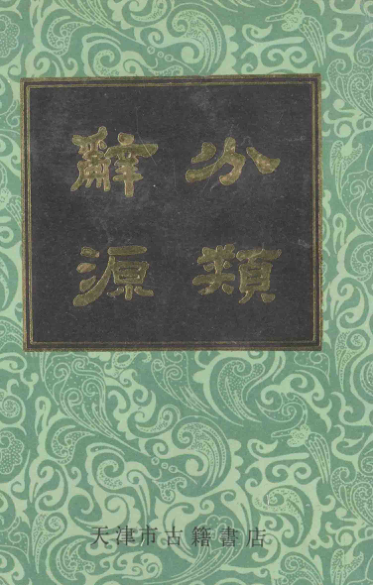 分類
辭源
天津市古籍書店